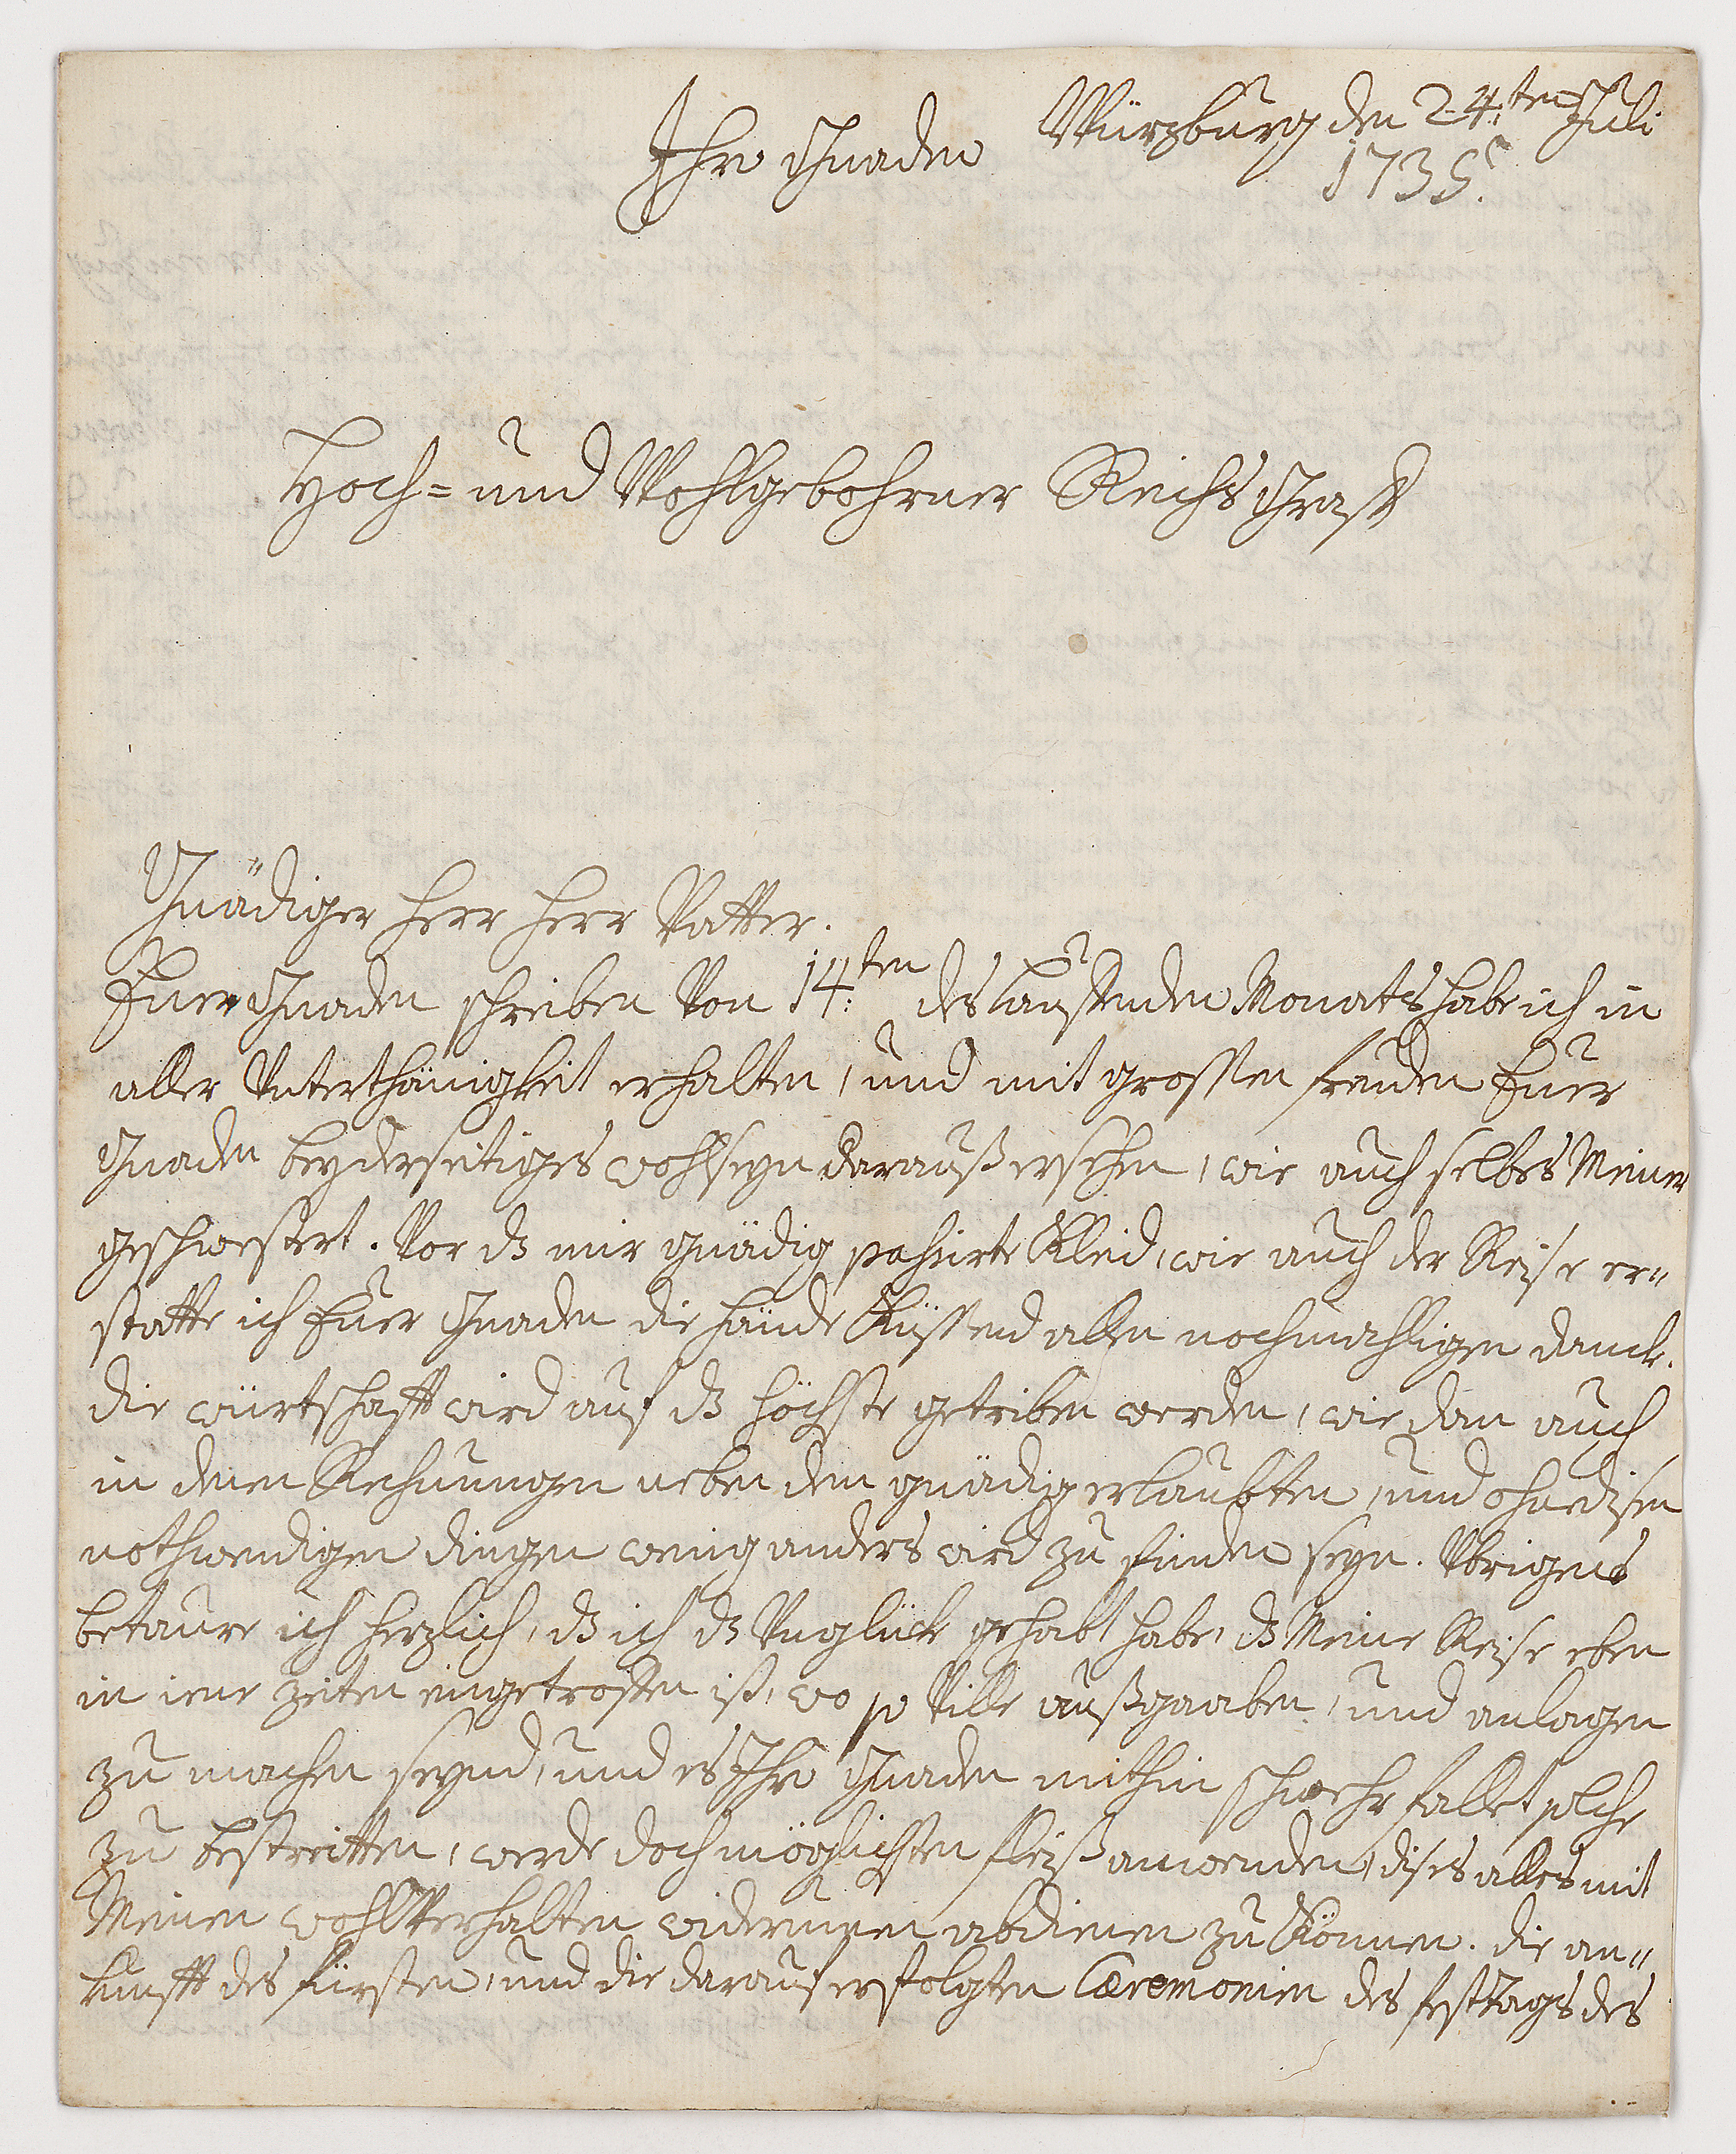 Würzburg den 24:ten Juli
1735.
Ihro Gnaden
Hoch= und Wohlgebohrner Reichs Graff
Gnädiger Herr Herr Vatter.
Euer Gnaden schreiben Von 14:ten des lauffenden Monats habe ich in
aller Unterthänigkeit erhalten, und mit grossen freuden Euer
Gnaden beyderseitiges wohlseyn darauß ersehen, wie auch selbes Meiner
geschwestert. Vor dz mir gnädig pasirte Kleid, wie auch der Reise er=
statte ich Euer Gnaden die hände Küssend allen nochmahligen danck.
die würtschafft wird auf dz höchste getriben werden, wie dan auch
in denen Rechnungen neben dem gnädig erlaubten, und ohnedisen
nothwendigen dingen wenig anders wird zu finden seyn. Ubrigens
betaure ich herzlich, dz ich dz Unglück gehabt habe, dz Meine Reise eben
in iene zeiten eingetroffen ist, wo so Ville außgaaben, und anlagen
zu machen seynd, und es Ihro Gnaden mithin schwehr fallet solche
zu bestreitten, werde doch möglichsten fleiß anwenden, dises alles mit
Meinen wohlVerhalten widerumen abdienen zu Können. die an=
kunfft des fürsten, und die darauf erfolgten Cæremonien des festtags des